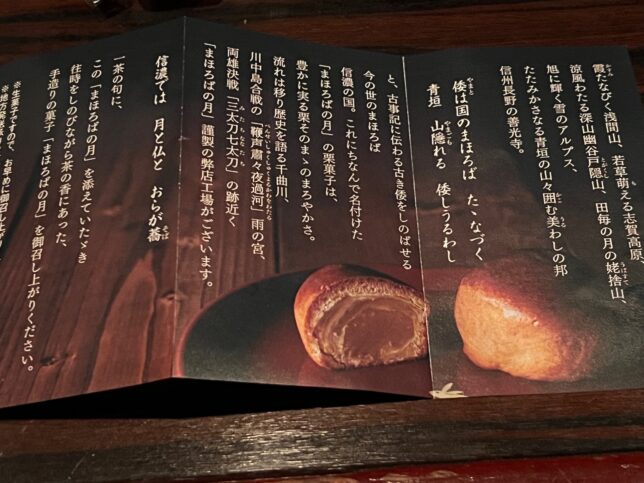 霞たなびく浅間山、若草萌える志賀高原、
涼風わたる深山幽谷戸隠山、田毎の月の姥捨山、
旭に輝く雪のアルプス、
たたみかさなる青垣の山々囲む美わしの邦
信州長野の善光寺。
倭は国のまほろば たゝなづく
青垣 山隠れる 倭しうるわし
と、古事記に伝わる古き倭をしのばせる
今の世のまほろば
信濃の国。これにちなんで名付けた
「まほろばの月」の栗菓子は、
豊かに実る栗そのまゝのまろやかさ。
流れは移り歴史を語る千曲川、
川中島合戦の「鞭声粛々夜過河」雨の宮、
両雄決戦、「三太刀七太刀」の跡近く
「まほろばの月」謹製の弊店工場がございます。
信濃では 月と仏と おらが蕎
一茶の句に、
この「まほろばの月」を添えていたゞき
往時をしのびながら茶の香にあった、
手造りの菓子「まほろばの月」を御召し上がりください。
※生菓子ですので、お早めに御召し上が